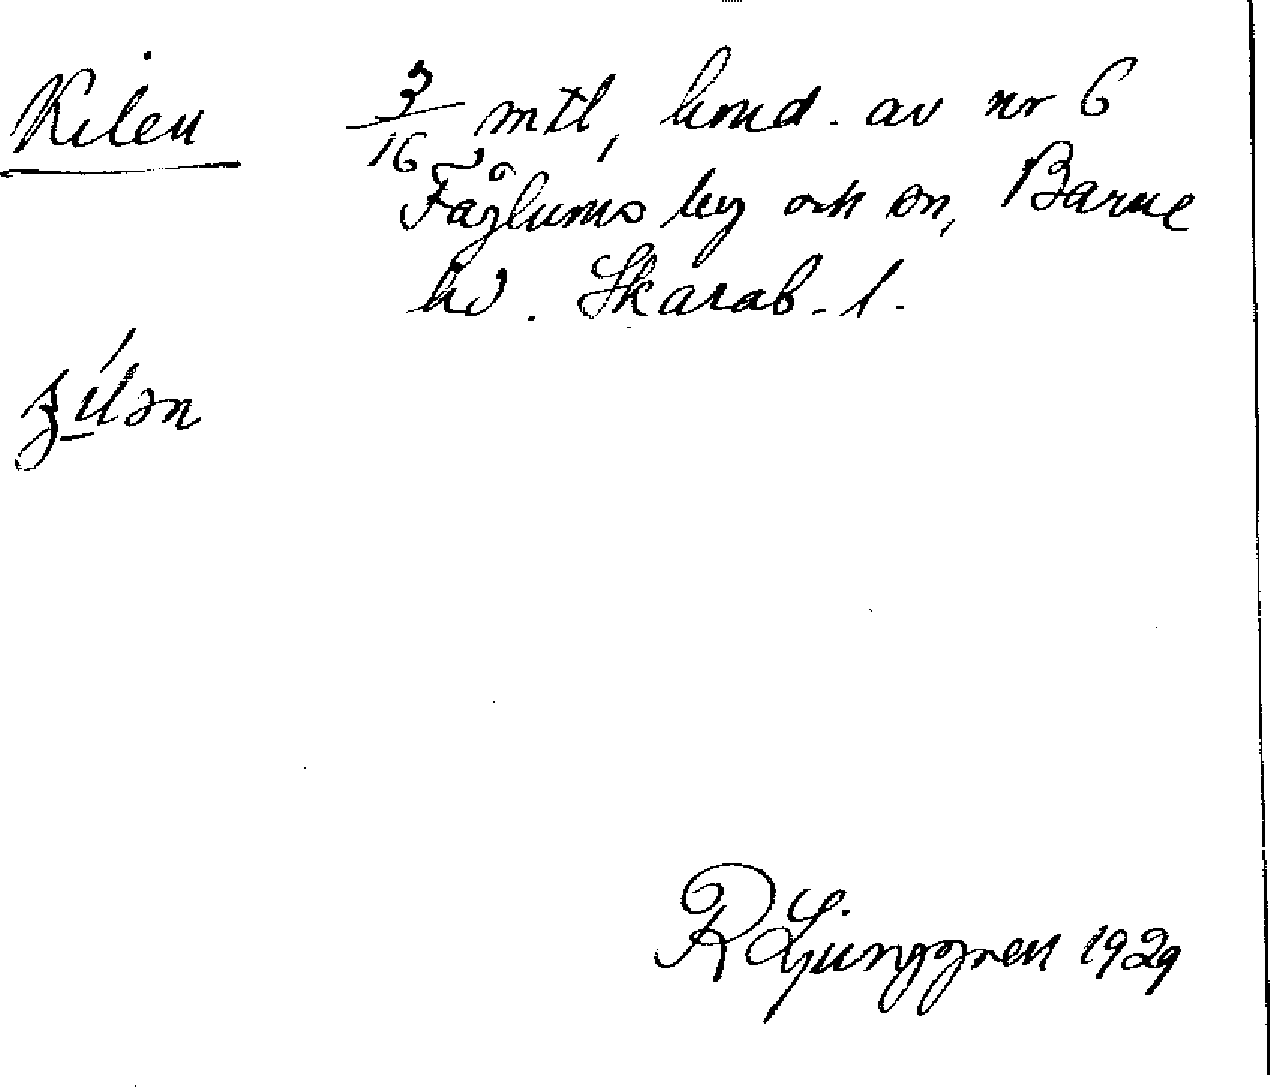 Kilen 3/16 mtl, hmd. av nr 6
Fåglums by och sn, Barne
hd. Skarab. l.
R Ljunggren 1929